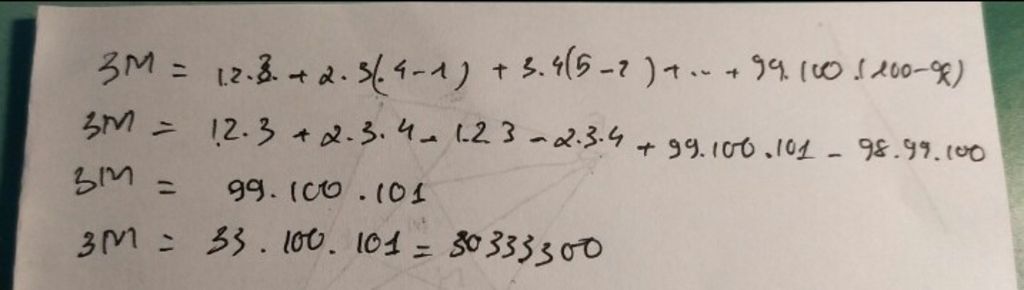 3M = 1.2.3. + 2.3(.4-1) + 3.4(5-2) + ... + 99.100.(100-98)
3M = 1.2.3 + 2.3.4 - 1.2 3 - 2.3.4 + 99.100.101 - 98.99.100
3M = 99.100.101
3M = 33.100.101 = 30333300